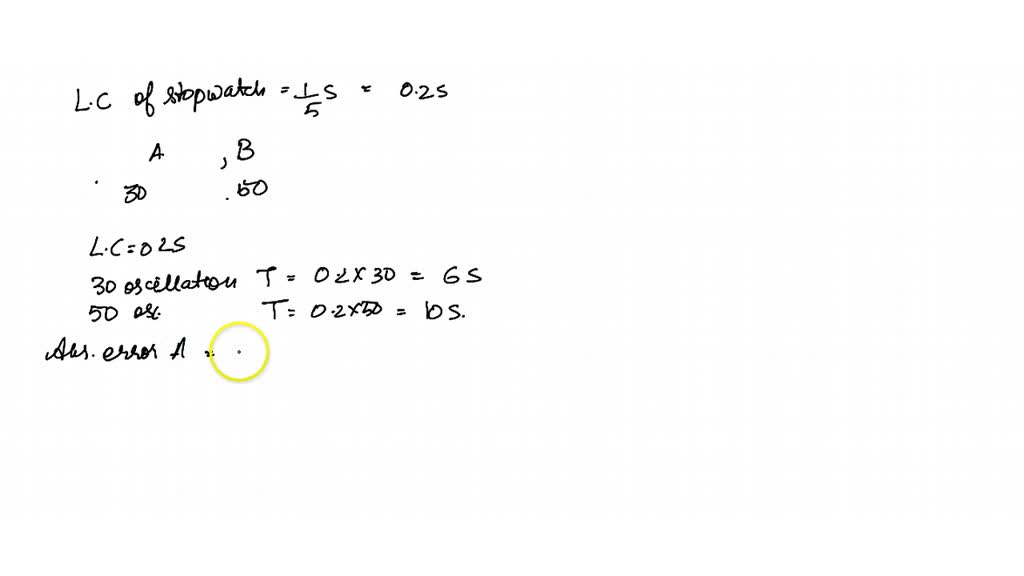 L.C of stopwatch = 1/5 s = 0.2s
A , B
30 . 50
L.C = 0 2S
30 oscillation T = 0.2 x 30 = 6 s
50 osc. T = 0.2x50 = 10 s.
Abs. error A =